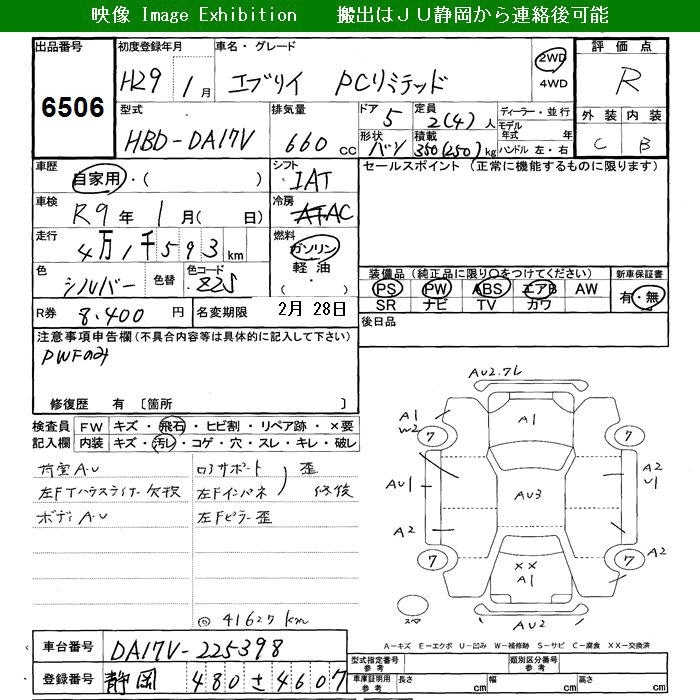 映像 Image Exhibition 搬出はJU静岡から連絡後可能
出品番号 初度登録年月 車名・グレード 評価点
6506 H29年 1月 エブリイ PCリミテッド 2WD 4WD R
型式 排気量 ドア 5 定員 2(4)人 ディーラー・並行 外装 内装
HBD-DA17V 660cc 形状 バン 積載 350(250)kg モデル年式 年 ハンドル 左・右 C B
車歴 自家用・( ) シフト IAT セールスポイント (正常に機能するものに限ります)
車検 R9年 1月( 日) 冷房 AC
走行 4万1千593km 燃料 ガソリン 軽油・( )
色 シルバー 色替 色コード Z2S 装備品(純正品に限り○をつけてください) 新車保証書
PS PW ABS エアB AW 有・無
SR ナビ TV カワ
R券 8.400円 名変期限 2月 28日 後日品
注意事項申告欄(不具合内容等は具体的に記入して下さい)
PWFのみ
修復歴 有 〔箇所 〕
検査員 FW キズ・飛石・ヒビ割・リペア跡・×要
記入欄 内装 キズ・汚レ・コゲ・穴・スレ・キレ・破レ
荷室A.U ロアサポート 歪
左Fインパネ 修後
ボディA.U 左Fピラー歪
◎ 41627km
AU2.7L
A1
A1
W2
7
7
AU1
AU3
A2
U1
A2
7
7
A2
××
A1
AU2
A-キズ E-エクボ U-凹み W-補修跡 S-サビ C-腐食 XX-交換済
車台番号 DA17V-225398 型式指定番号 参考 類別区分番号 参考
登録番号 静岡 480 た 4607 車庫証明用 参考 長さ cm 幅 cm 高さ cm